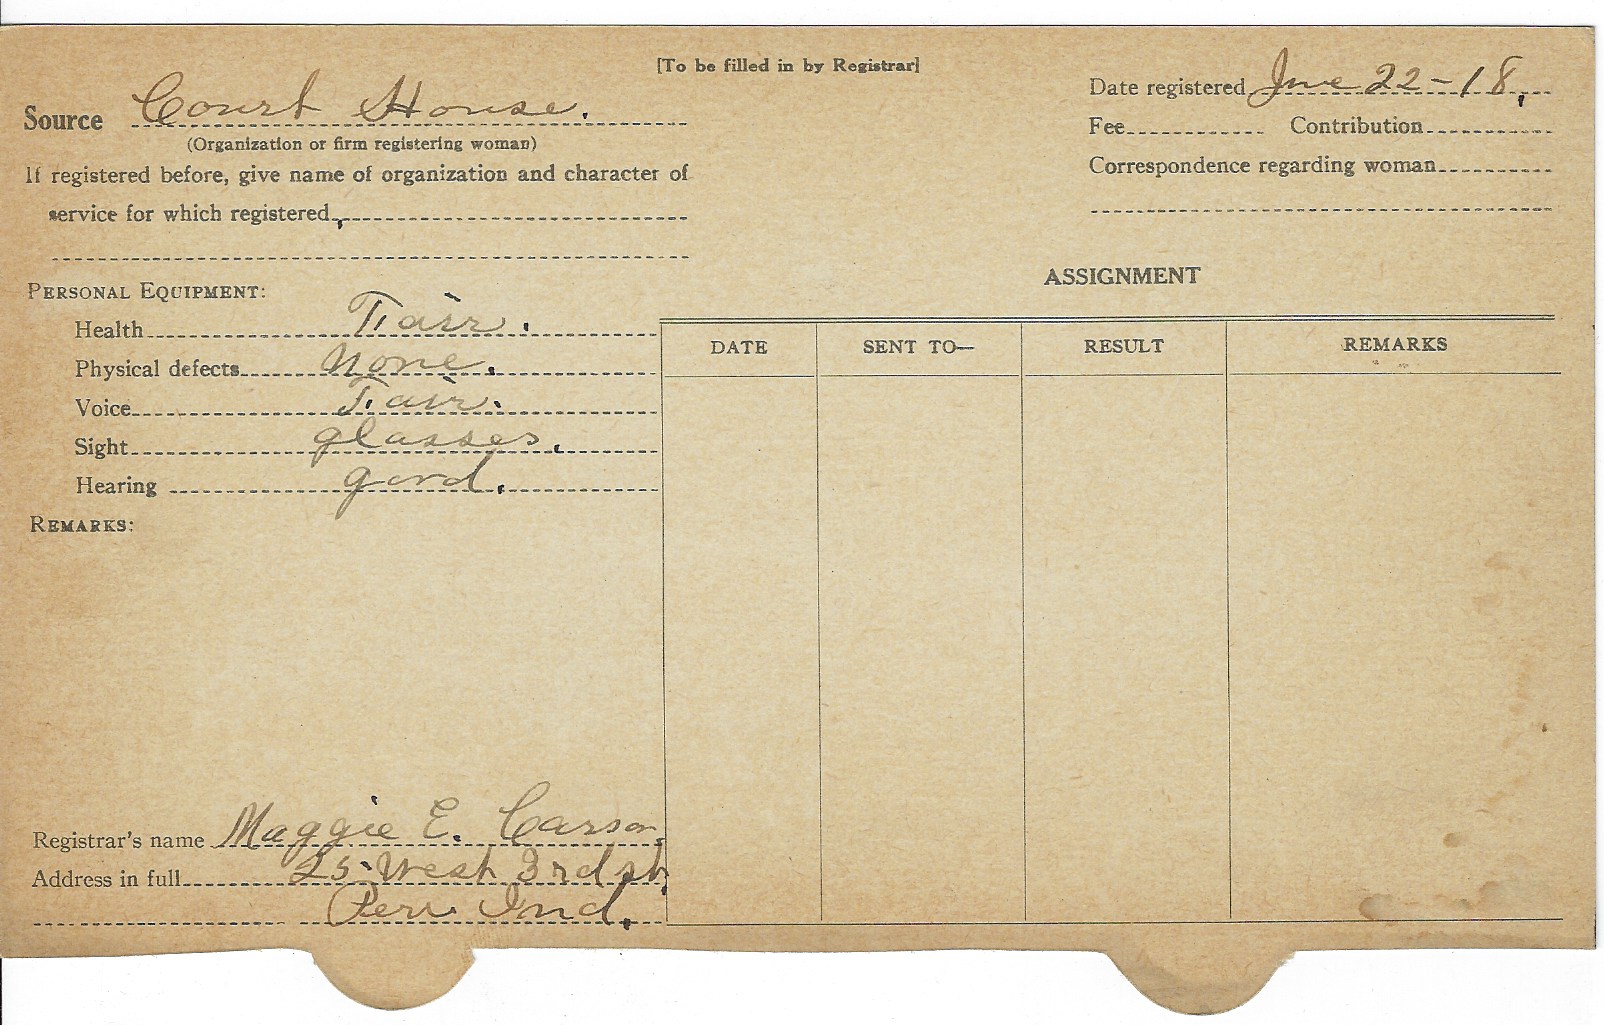 [To be filled in by Registrar]
Source Court House.
(Organization or firm registering woman)
If registered before, give name of organization and character of
service for which registered
Date registered June 22-18.
Fee Contribution
Correspondence regarding woman
PERSONAL EQUIPMENT:
Health Fair.
Physical defects none.
Voice Fair.
Sight glasses.
Hearing good.
REMARKS:
ASSIGNMENT
DATE SENT TO— RESULT REMARKS
Registrar's name Maggie E. Carson.
Address in full 25 West 3rd st.
Peru Ind.